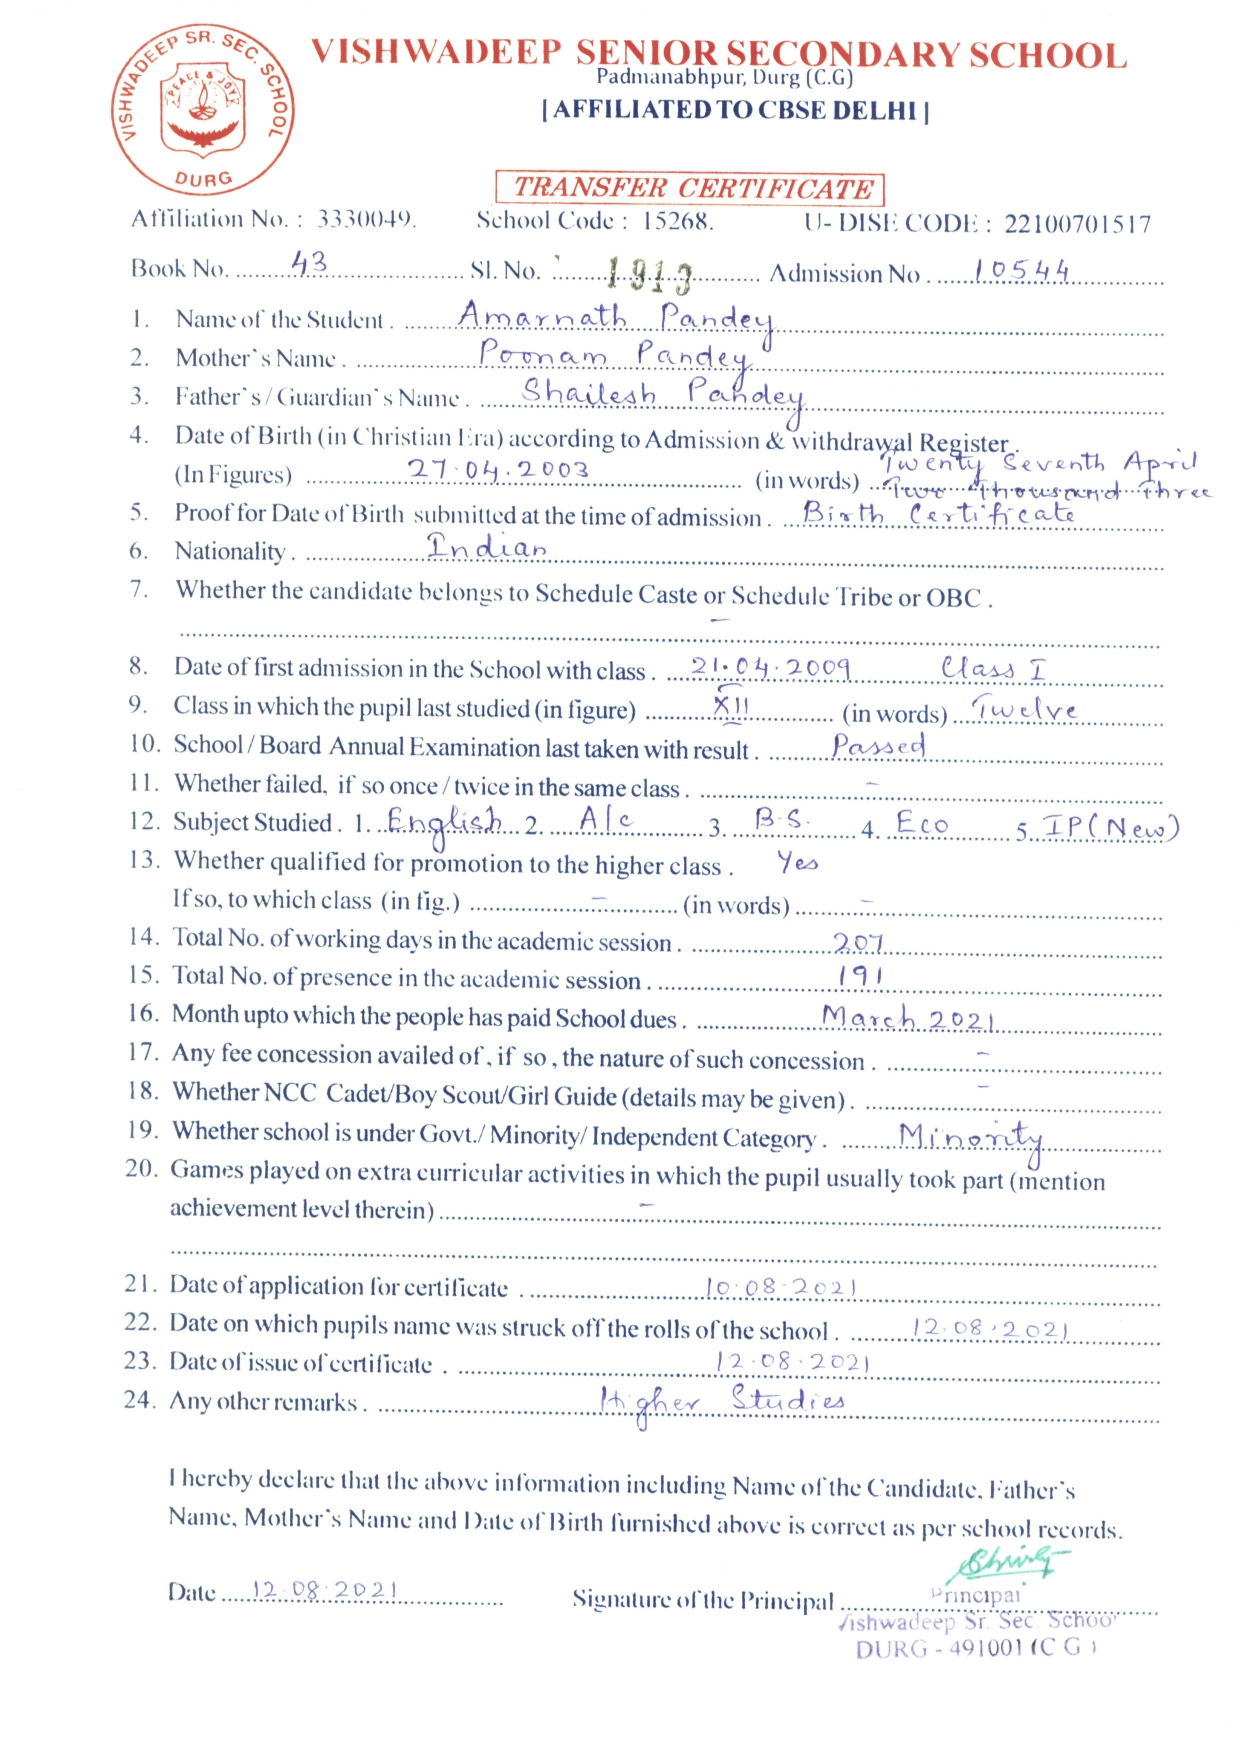 VISHWADEEP SR. SEC. SCHOOL
PEACE & JOY
DURG
VISHWADEEP SENIOR SECONDARY SCHOOL
Padmanabhpur, Durg (C.G)
[AFFILIATED TO CBSE DELHI]
TRANSFER CERTIFICATE
Affiliation No. : 3330049. School Code : 15268. U-DISE CODE : 22100701517
Book No. 43 Sl. No. 1913 Admission No. 10544
1. Name of the Student. Amarnath Pandey
2. Mother's Name. Poonam Pandey
3. Father's/Guardian's Name. Shailesh Pandey
4. Date of Birth (in Christian Era) according to Admission & withdrawal Register.
(In Figures) 27.04.2003 (in words) Twenty Seventh April
Two Thousand Three
5. Proof for Date of Birth submitted at the time of admission. Birth Certificate
6. Nationality. Indian
7. Whether the candidate belongs to Schedule Caste or Schedule Tribe or OBC.
-
8. Date of first admission in the School with class. 21.04.2009 Class I
9. Class in which the pupil last studied (in figure) XII (in words) Twelve
10. School/Board Annual Examination last taken with result. Passed
11. Whether failed, if so once/twice in the same class. -
12. Subject Studied. 1. English 2. A/c 3. B.S. 4. Eco 5. IP(New)
13. Whether qualified for promotion to the higher class. Yes
If so, to which class (in fig.) - (in words) -
14. Total No. of working days in the academic session. 207
15. Total No. of presence in the academic session. 191
16. Month upto which the people has paid School dues. March 2021
17. Any fee concession availed of, if so, the nature of such concession. -
18. Whether NCC Cadet/Boy Scout/Girl Guide (details may be given). -
19. Whether school is under Govt./ Minority/ Independent Category. Minority
20. Games played on extra curricular activities in which the pupil usually took part (mention
achievement level therein) -
21. Date of application for certificate. 10.08.2021
22. Date on which pupils name was struck off the rolls of the school. 12.08.2021
23. Date of issue of certificate. 12.08.2021
24. Any other remarks. Higher Studies
I hereby declare that the above information including Name of the Candidate, Father's
Name, Mother's Name and Date of Birth furnished above is correct as per school records.
Date 12.08.2021 Signature of the Principal
Principal
Vishwadeep Sr. Sec. School
DURG - 491001 (C G)